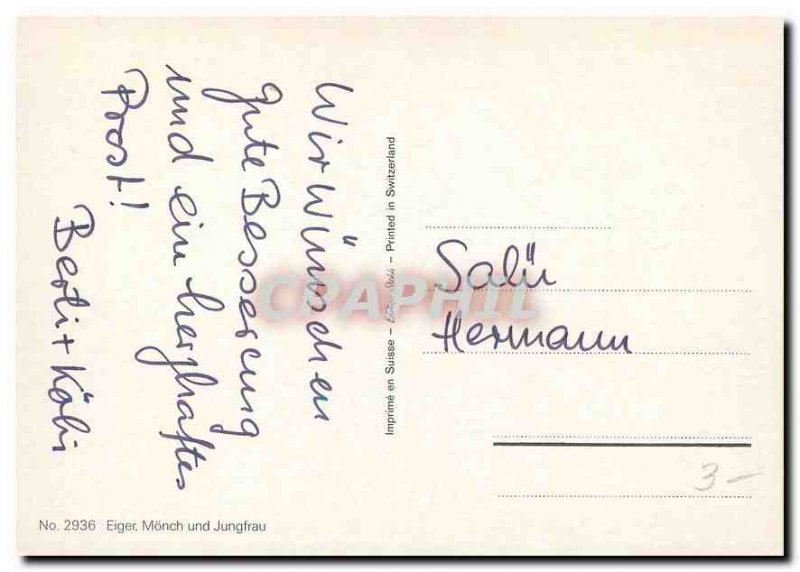 Wir Wünschen
gute Besserung
und ein herzhaftes
Prost!
Berti + Köbi
Imprimé en Suisse – Edition Stehli – Printed in Switzerland
Salü
Hermann
3.–
No. 2936 Eiger, Mönch und Jungfrau
CPAPHIL